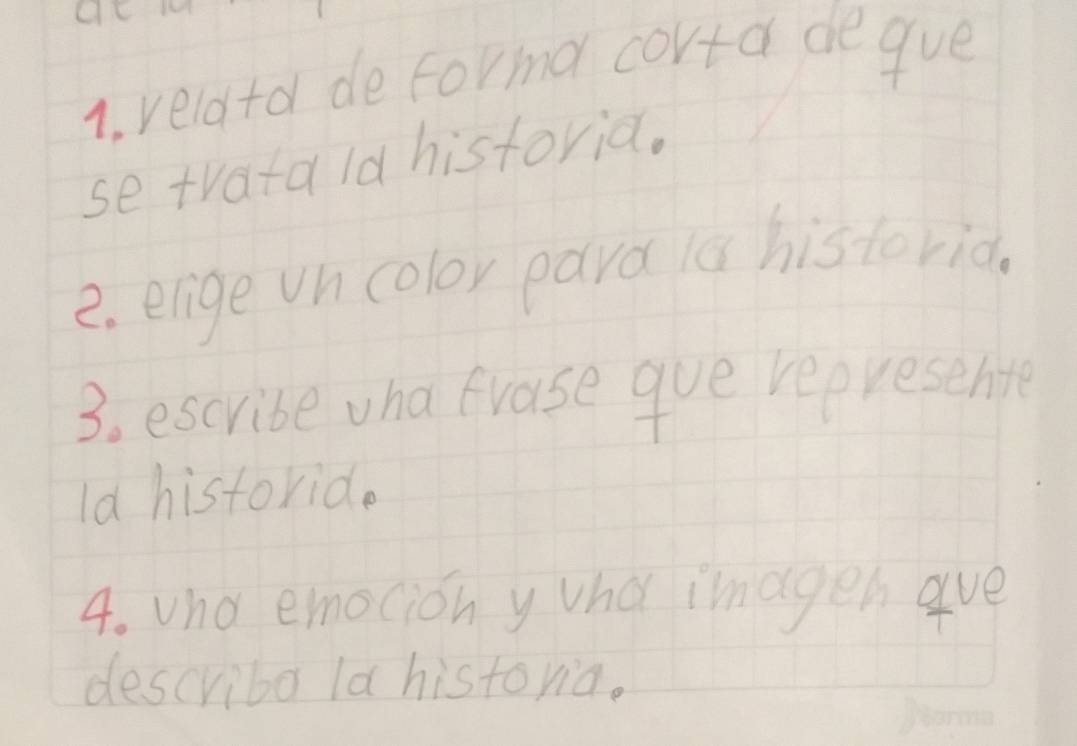 1. relata de forma corta de que
se trata la historia.
2. elige un color para la historia.
3. escribe una frase que represente
la historia.
4. una emoción y una imagen que
describa la historia.
Norma